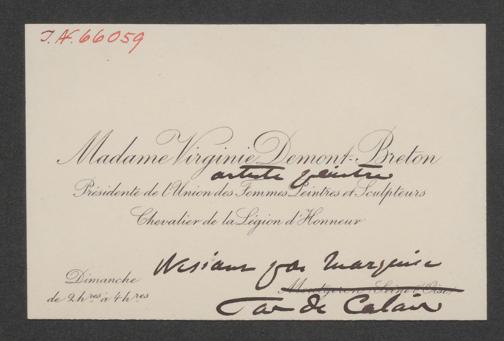 J. Af. 66059
Madame Virginie Demont-Breton
artiste peintre
Présidente de l'Union des Femmes Peintres et Sculpteurs
Chevalier de la Légion d'Honneur
Wissant par Marquise
Dimanche
Montgeron Seine & Oise
de 2 h res à 4 h res
Pas de Calais